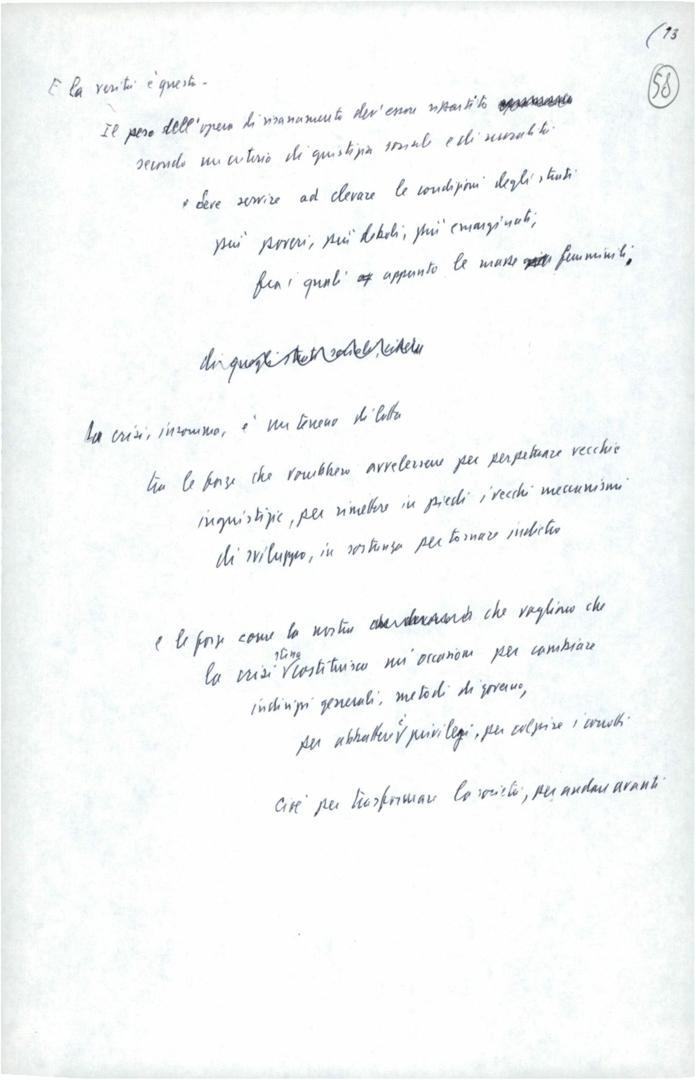 (13
58
E la verità è questa -
Il peso dell'opera di risanamento dev'essere ripartito
secondo un criterio di giustizia sociale e di moralità
e deve servire ad elevare le condizioni degli strati
più poveri, più deboli, più emarginati,
fra i quali appunto le masse femminili,
di quegli strati sociali,
La crisi, insomma, è un terreno di lotta
tra le forze che vorrebbero avvalersene per perpetuare vecchie
ingiustizie, per rimettere in piedi i vecchi meccanismi
di sviluppo, in sostanza per tornare indietro
e le forze come la nostra che vogliono che
la crisi stessa costituisca un'occasione per cambiare
indirizzi generali, metodi di governo,
per abbattere i privilegi, per colpire i corrotti
Cioè per trasformare la società, per andare avanti